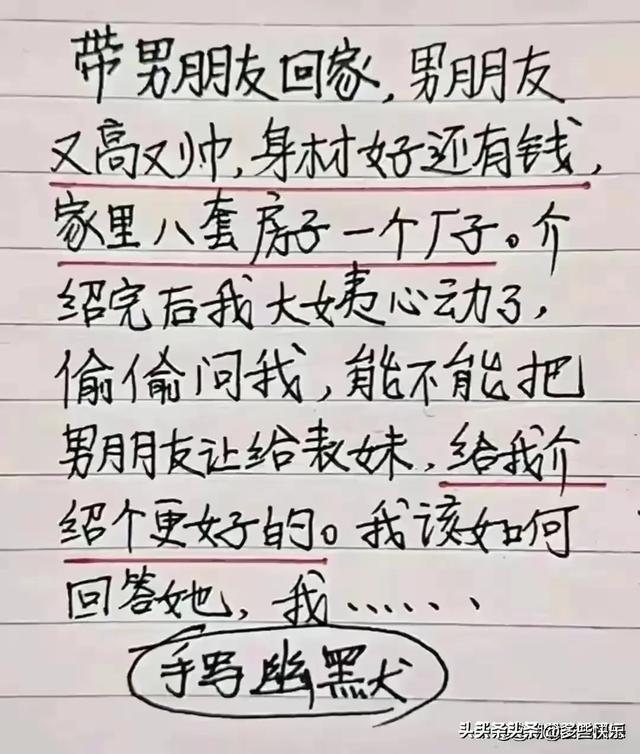 带男朋友回家,男朋友
又高又帅,身材好还有钱,
家里八套房子一个厂子。介
绍完后我大姨心动了,
偷偷问我,能不能把
男朋友让给表妹,给我介
绍个更好的。我该如何
回答她,我......
手写幽默犬